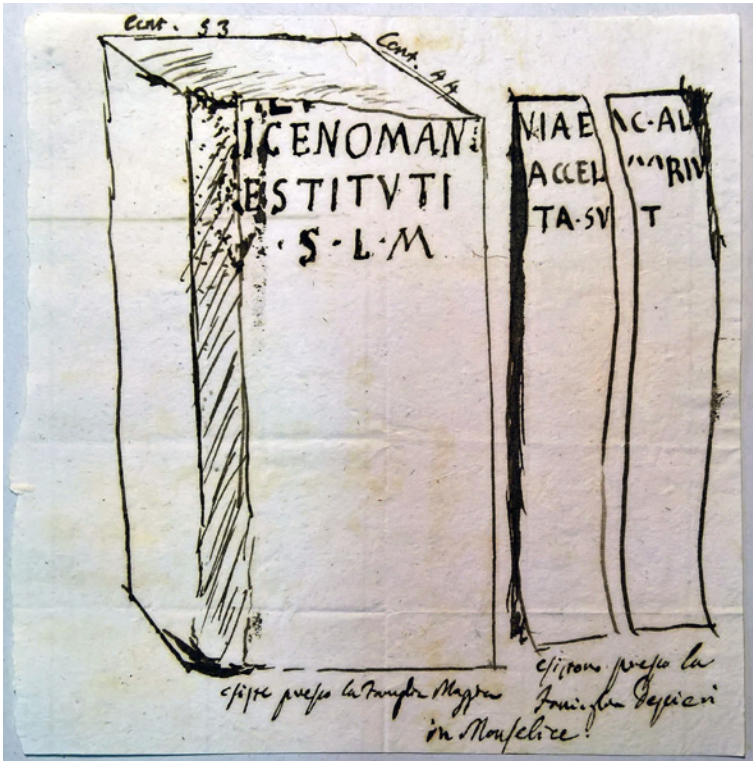 Cent. 53
Cent. 44
ICENOMAN
ESTITVTI
V·S·L·M
VIAE
ACCEL
TA·SV
C·AL
RIV
T
esiste presso la Famiglia
esistono presso la
Famiglia
in Monselice.